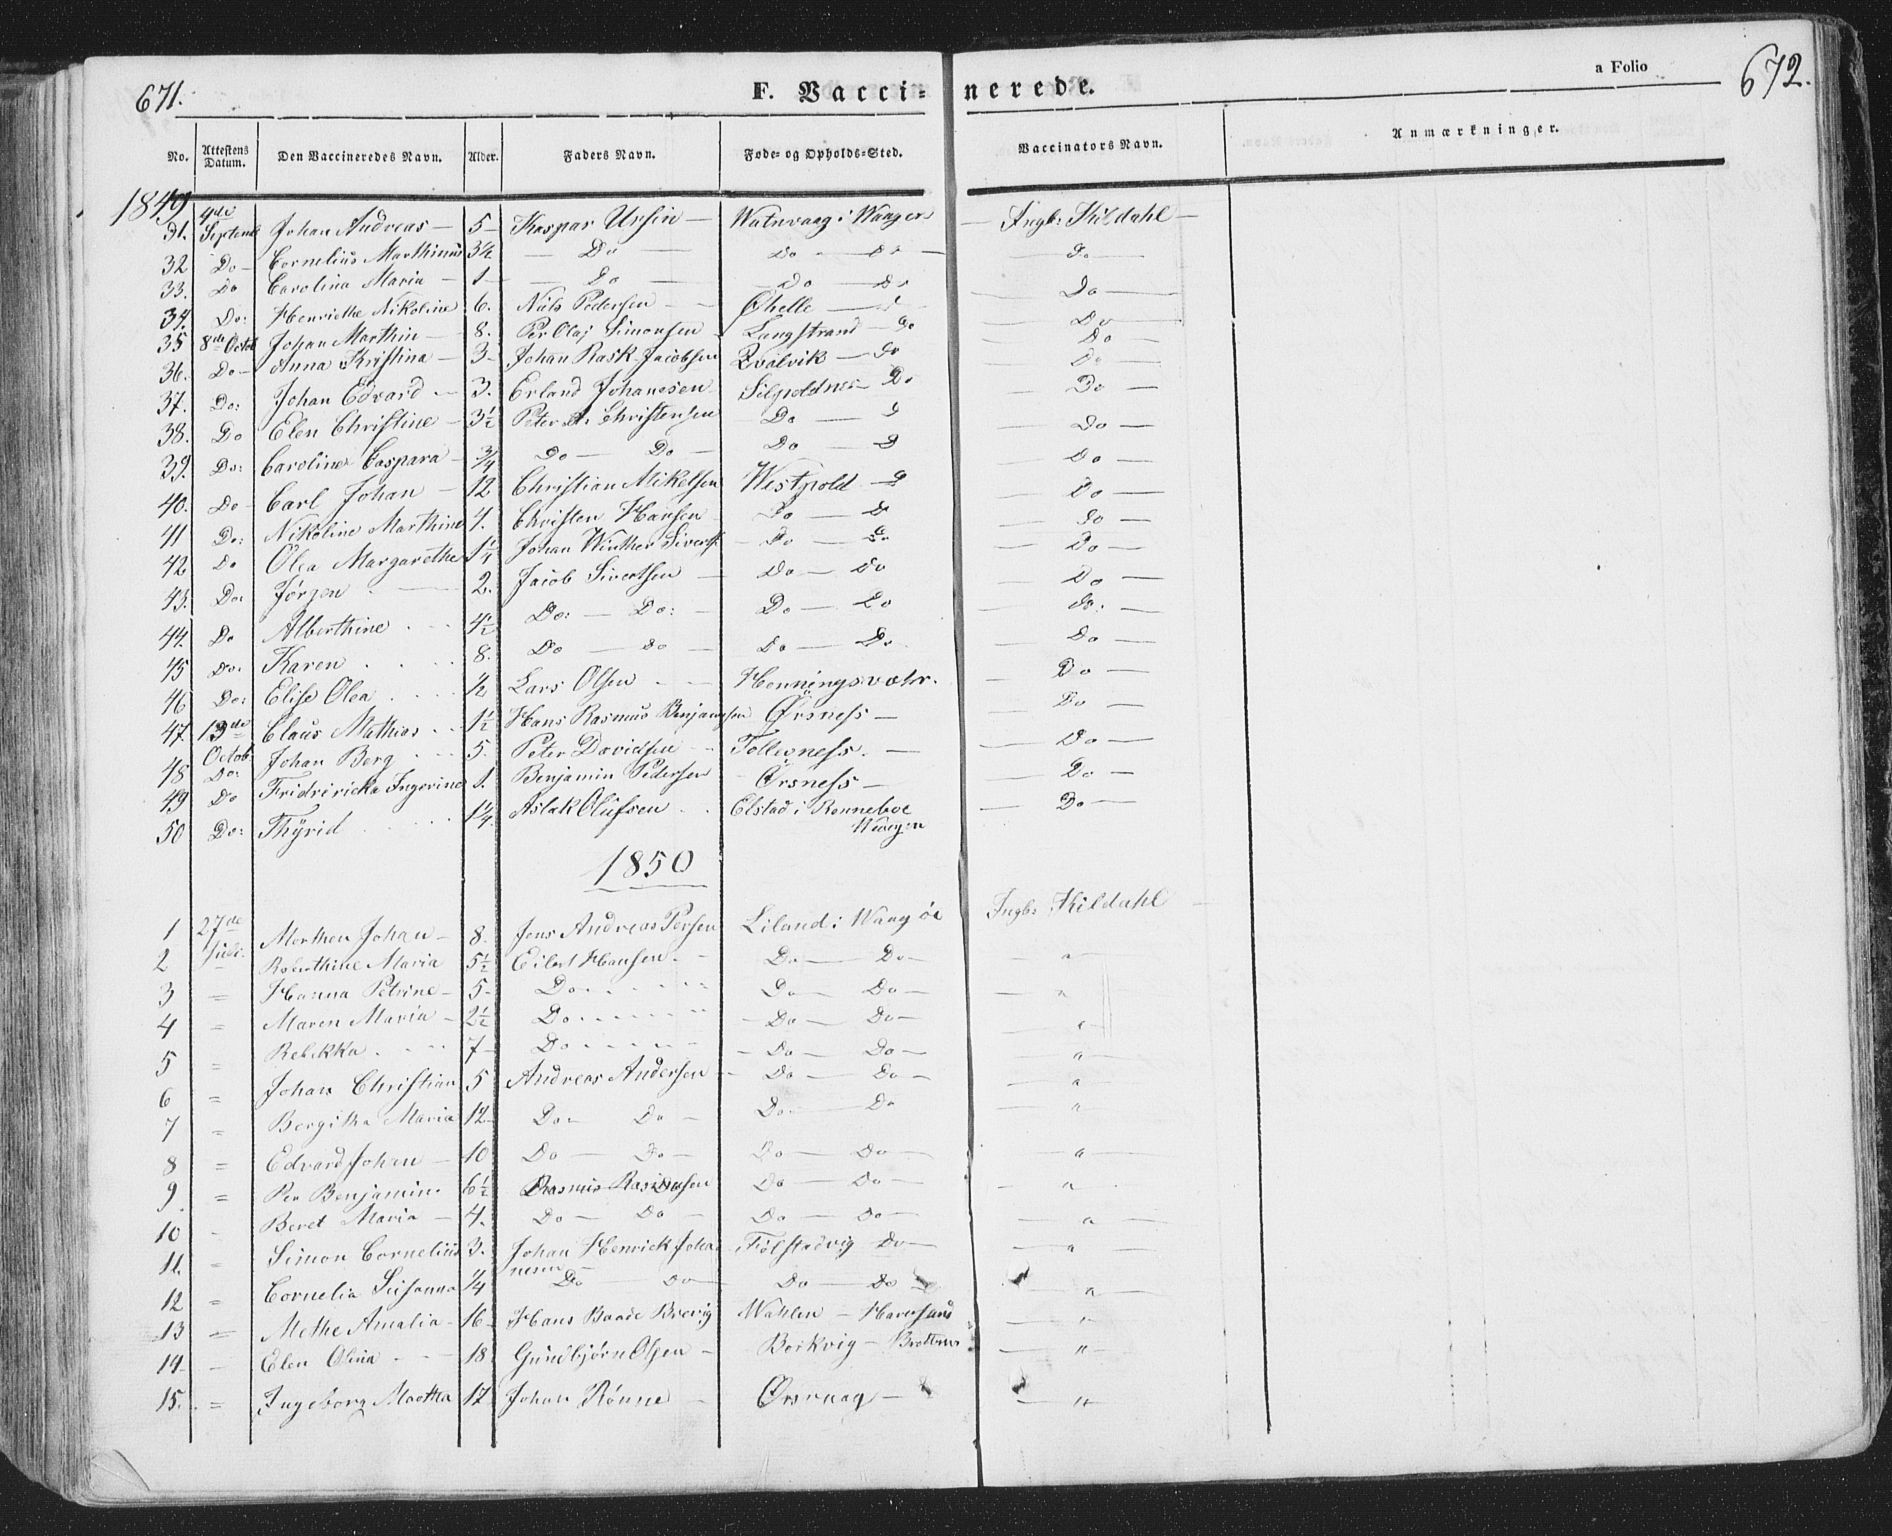 671.
F. Vacci- nerede.
a Folio 672.
No. Attestens Datum. Den Vaccineredes Navn. Alder. Faders Navn. Føde- og Opholds-Sted. Vaccinators Navn. Anmærkninger.
1849
31. 4de Septemb Johan Andreas — 5 — Kaspar Ursin — Watnvaag i Waagen — Ingb: Kildahl —
32 Do — Cornelius Marthinus 3/4 — Do — Do — Do — Do —
33. Do Carolina Maria — 1 — Do — Do — Do — Do —
34. Do: Henriethe Nikoline 6. Nils Pedersen — Ø Helle — — Do —
35 8de Octob Johan Marthin — 8. Per Olaj Simonsen Langstrand — Do — Do —
36. Do — Anna Kristina — 3 — Johan Rask Jacobsen Qvalvik — Do — Do —
37. Do: Johan Edvard — 3. Erland Johanesen Silpoldnes — Do — Do —
38. Do Elen Christine — 3½ Peter A. Christensen Do — Do —
39. Do: Caroline Caspara — 3/4 Do — Do — Do — D — Do —
40. Do — Carl Johan — 12 Christian Mikelsen Westpold — Do —
41 Do: Nikoline Marthine 4. Christen Hansen Do — D — Do —
42 Do Olea Margarethe 1¼ Johan Winther Siverts — Do — Do — Do —
43. Do: Jørgen — 2. Jacob Sivertsen — Do — Do — Do —
44. Do Alberthine 4½ Do: — Do: — Do — Do — Do. —
45 Do: Karen 8. Do — Do — Do — Do — Do —
46 Do: Elise Olea ½ Lars Olsen Henningsvær. — Do —
47. 13de Octob: Claus Mathias 1½ Hans Rasmus Benjamsen Ørsness — Do —
48 Do: Johan Berg 5. Peter Davidsen Follesness. — Do —
49 Do Fridriricka Ingerine 1. Benjamin Pedersen Ørsness — Do —
50 Do: Thyrid 1/4 Aslak Olufsen Elstad i Rønneboe — Do —
Waagen
1850
1 27de Juli. Morthen Johan — 8. Jens Andreas Persen Liland i Waag øe Ingb: Kildahl
2 Bserthine Maria 5½ Eilert Hansen. — Do — Do — "
3 = Hanna Petrine — 5 — Do Do — Do — "
4 = Maren Maria — 2½ Do — Do — Do — "
5 = Rebekka 7 — Do — Do — Do — "
6 = Johan Christian 5 Andreas Andersen — Do — Do — "
7 = Bergitha Maria 12 Do — Do — Do — Do "
8 = Edvard Johan — 10 Do — Do — Do — Do — "
9. = Per Benjamin. 6½ Rasmus Rasmusen Do — Do — "
10 - Beret Maria — 4. Do — Do — Do — Do — "
11. = Simon Cornelius 3. Johan Henrick Joha- Følstadvig Do — "
nesen
12 = Cornelia Susanna 1/4 Do — Do — Do — Do "
13 = Methe Amalia — 16 Hans Baade Brevig Wahlen — Havnsund "
14 — Elen Olina 18 Gundbjørn Olsen — Borkvig — "
15. = Ingeborg Maotha 17 Johan Rønne Ørsvaag — "